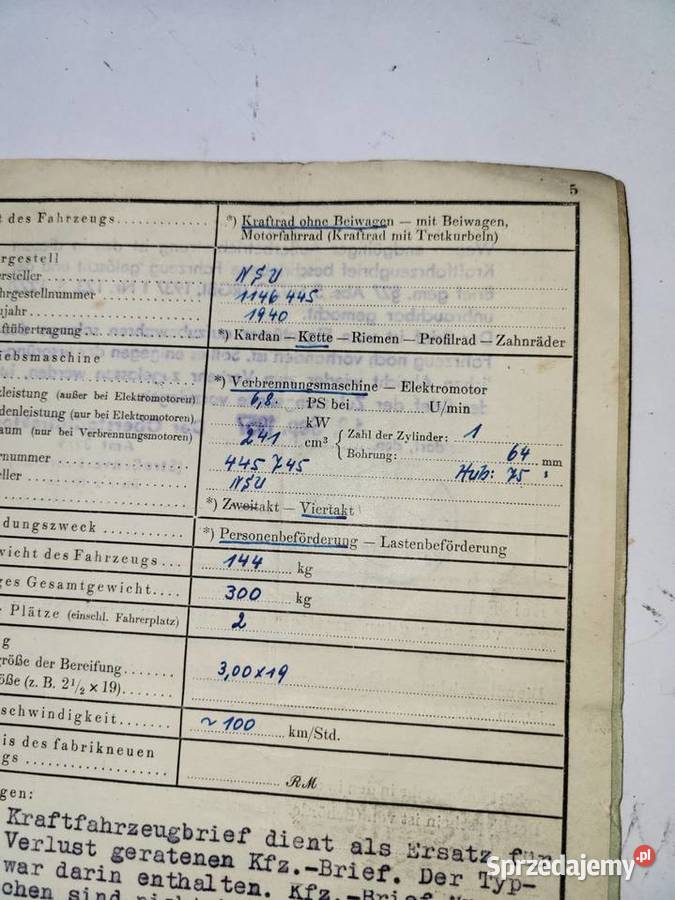 5
t des Fahrzeugs............ *) Kraftrad ohne Beiwagen — mit Beiwagen,
Motorfahrrad (Kraftrad mit Tretkurbeln)
rgestell
ersteller NSU
hrgestellnummer 1146 445
ujahr 1940
ftübertragung *) Kardan — Kette — Riemen — Profilrad — Zahnräder
iebsmaschine
*) Verbrennungsmaschine — Elektromotor
zleistung (außer bei Elektromotoren) 6,8 PS bei U/min
denleistung (nur bei Elektromotoren) kW
aum (nur bei Verbrennungsmotoren) 241 cm³ { Zahl der Zylinder: 1
Bohrung: 64 mm
rnummer 445 745 Hub: 75 "
eller NSU
*) Zweitakt — Viertakt
dungszweck *) Personenbeförderung — Lastenbeförderung
wicht des Fahrzeugs 144 kg
ges Gesamtgewicht 300 kg
r Plätze (einschl. Fahrerplatz) 2
g
größe der Bereifung 3,00x19
öße (z. B. 2½ × 19)
schwindigkeit ~ 100 km/Std.
is des fabrikneuen
gs RM
gen:
Kraftfahrzeugbrief dient als Ersatz für
Verlust geratenen Kfz.-Brief. Der Typ-
war darin enthalten. Kfz.-Brief
chen sind
Sprzedajemy.pl